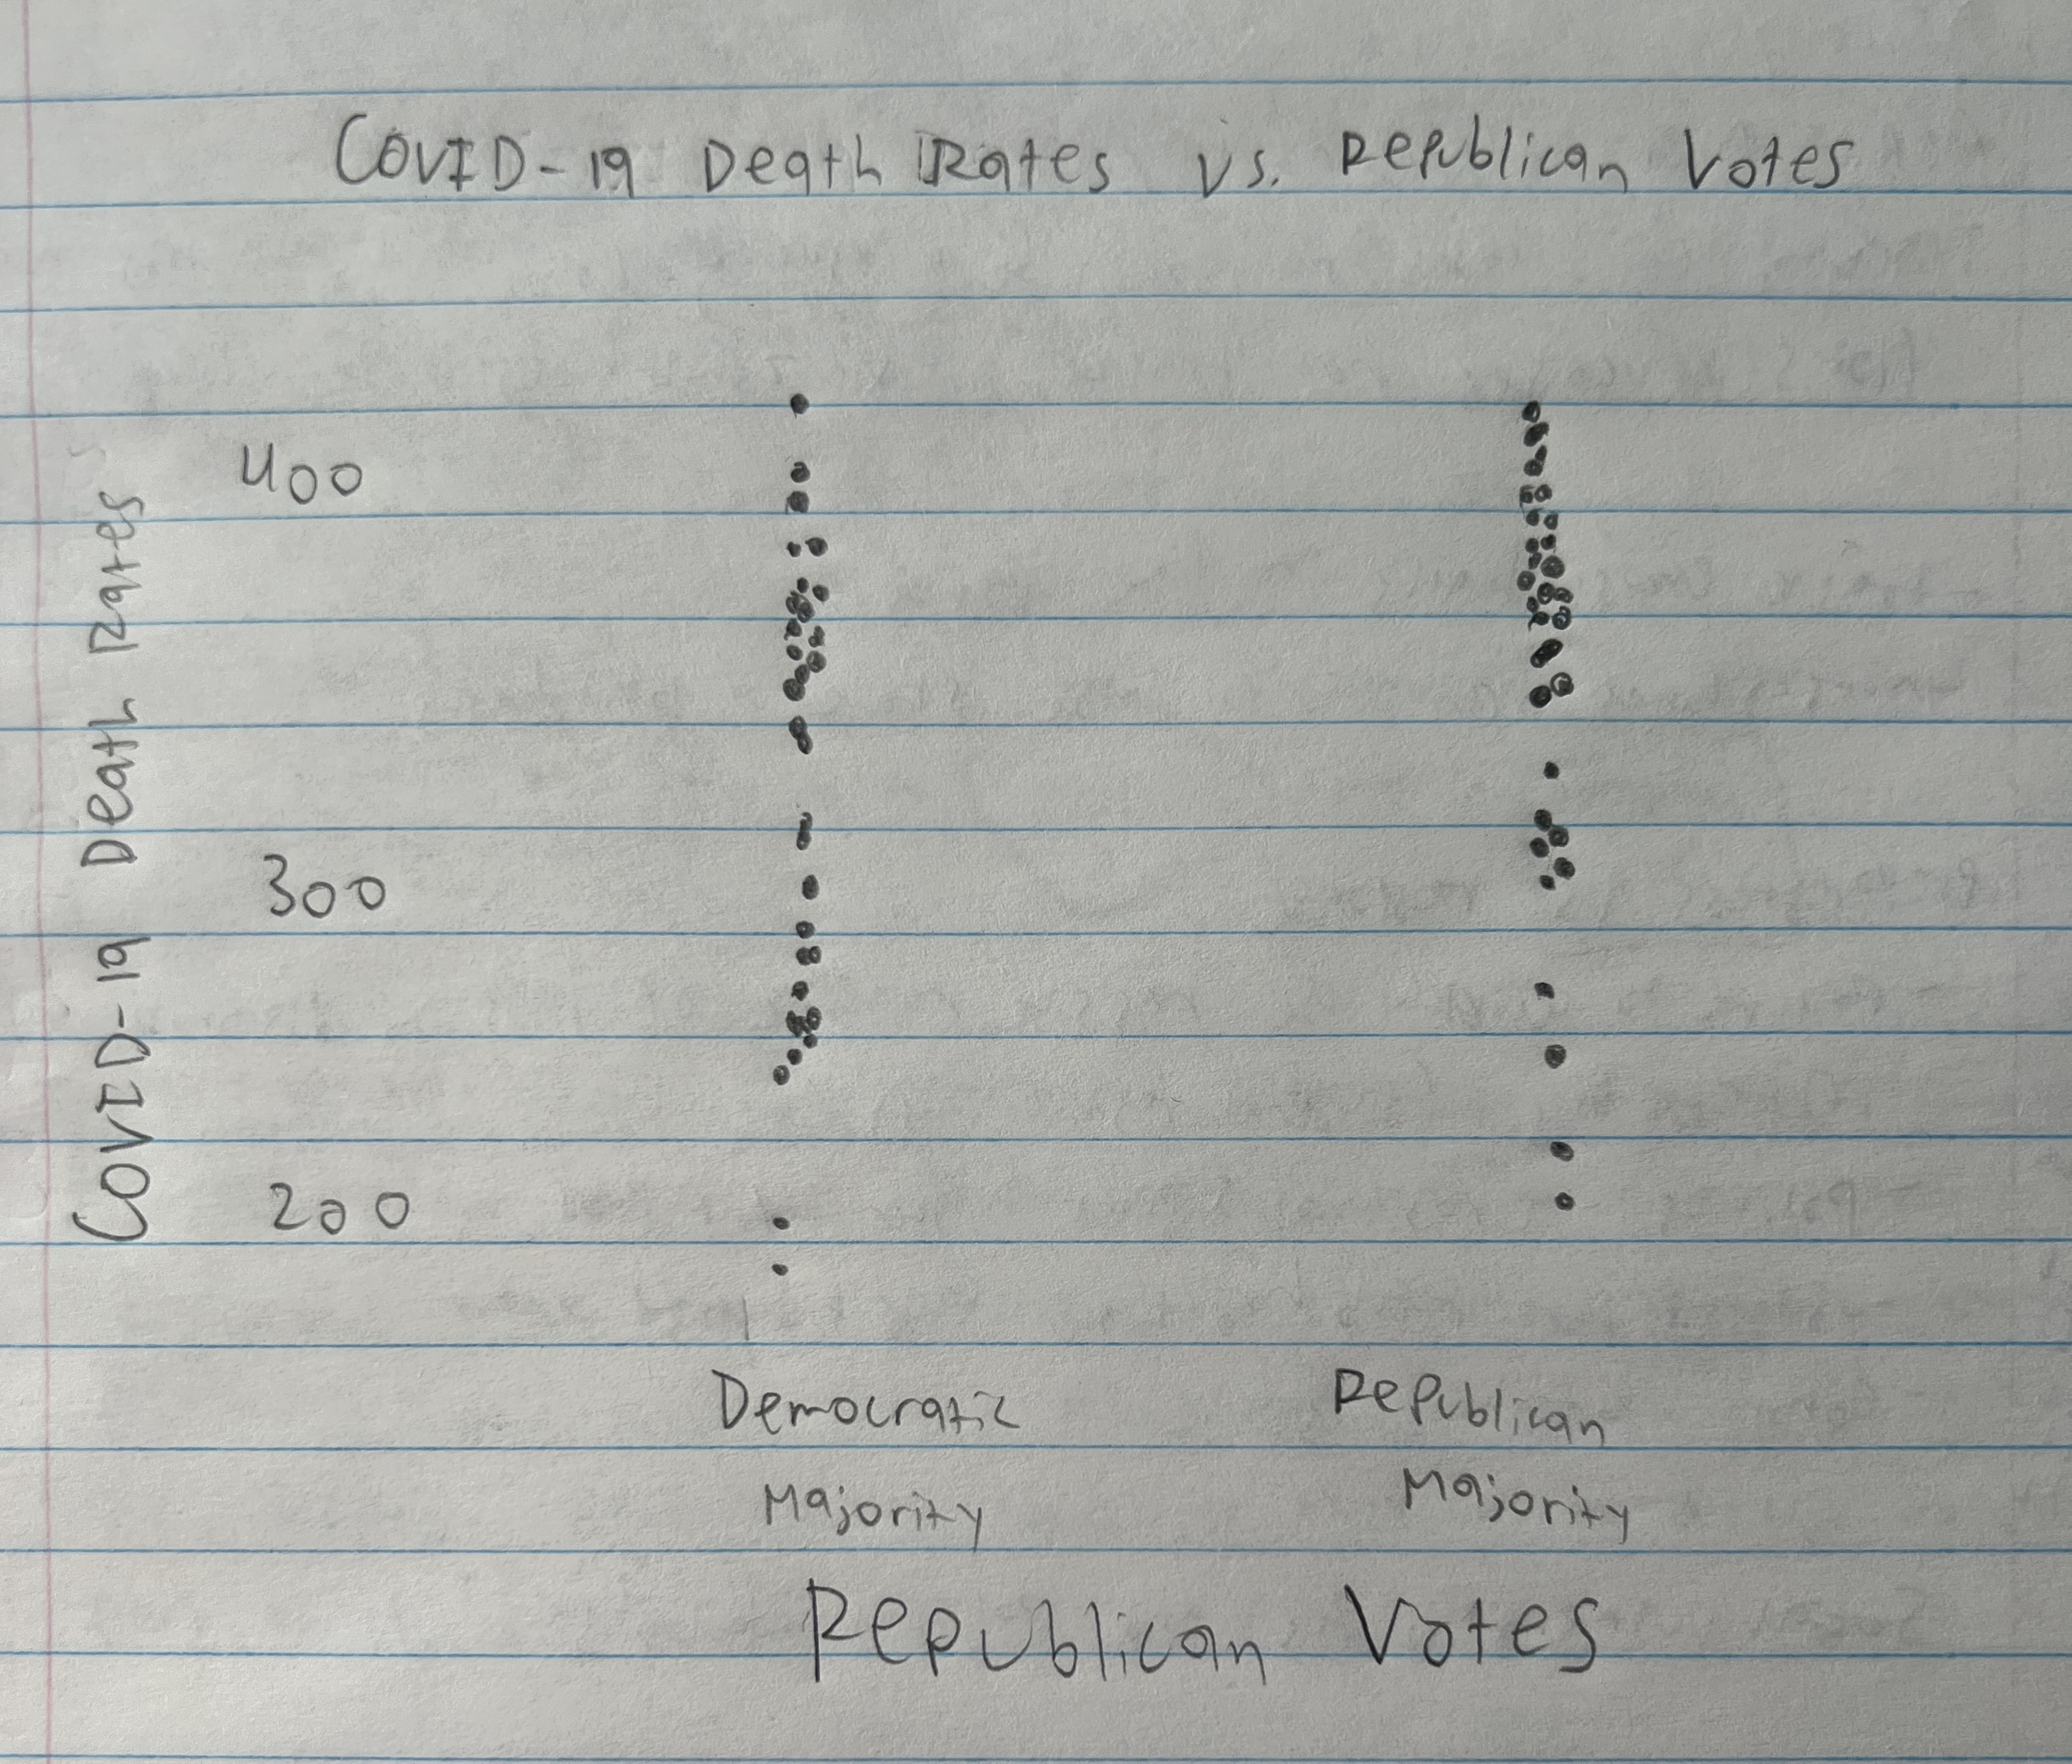 COVID-19 Death Rates vs. Republican Votes
COVID-19 Death Rates
400
300
200
Democratic Republican
Majority Majority
Republican Votes